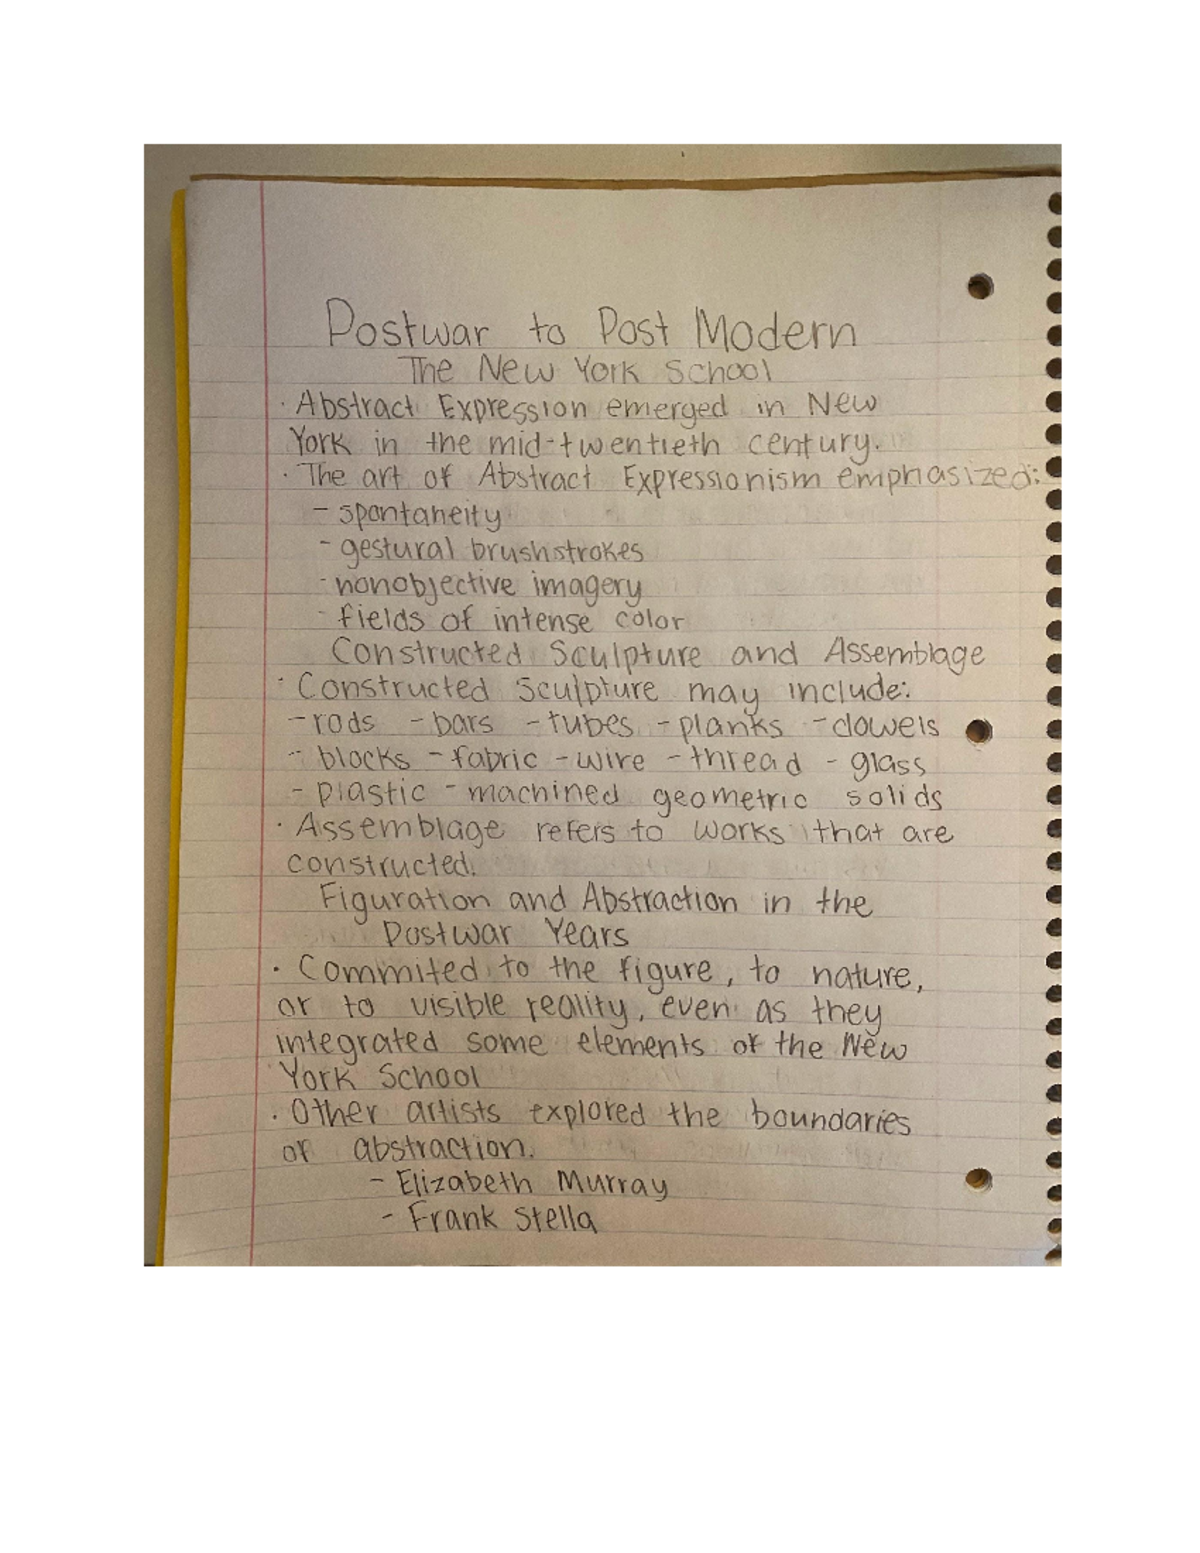 Postwar to Post Modern
The New York School
· Abstract Expression emerged in New
York in the mid-twentieth century.
· The art of Abstract Expressionism emphasized:
- spontaneity
- gestural brushstrokes
- nonobjective imagery
- fields of intense color
Constructed Sculpture and Assemblage
· Constructed Sculpture may include:
- rods - bars - tubes - planks - dowels
- blocks - fabric - wire - thread - glass
- plastic - machined geometric solids
· Assemblage refers to works that are
constructed.
Figuration and Abstraction in the
Postwar Years
· Commited to the figure, to nature,
or to visible reality, even as they
integrated some elements of the New
York School
· Other artists explored the boundaries
of abstraction.
- Elizabeth Murray
- Frank Stella